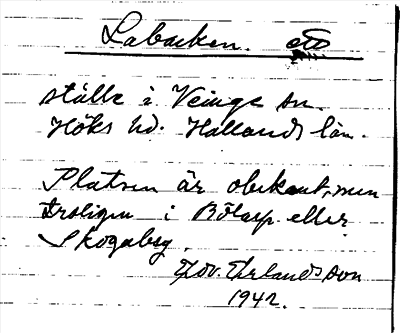 Labacken. ett
ställe i Veinge sn.
Höks hd. Hallands län.
Platsen är obekant, men
troligen i Bölarp eller
Skogaby.
Edv. Erlandsson
1942.